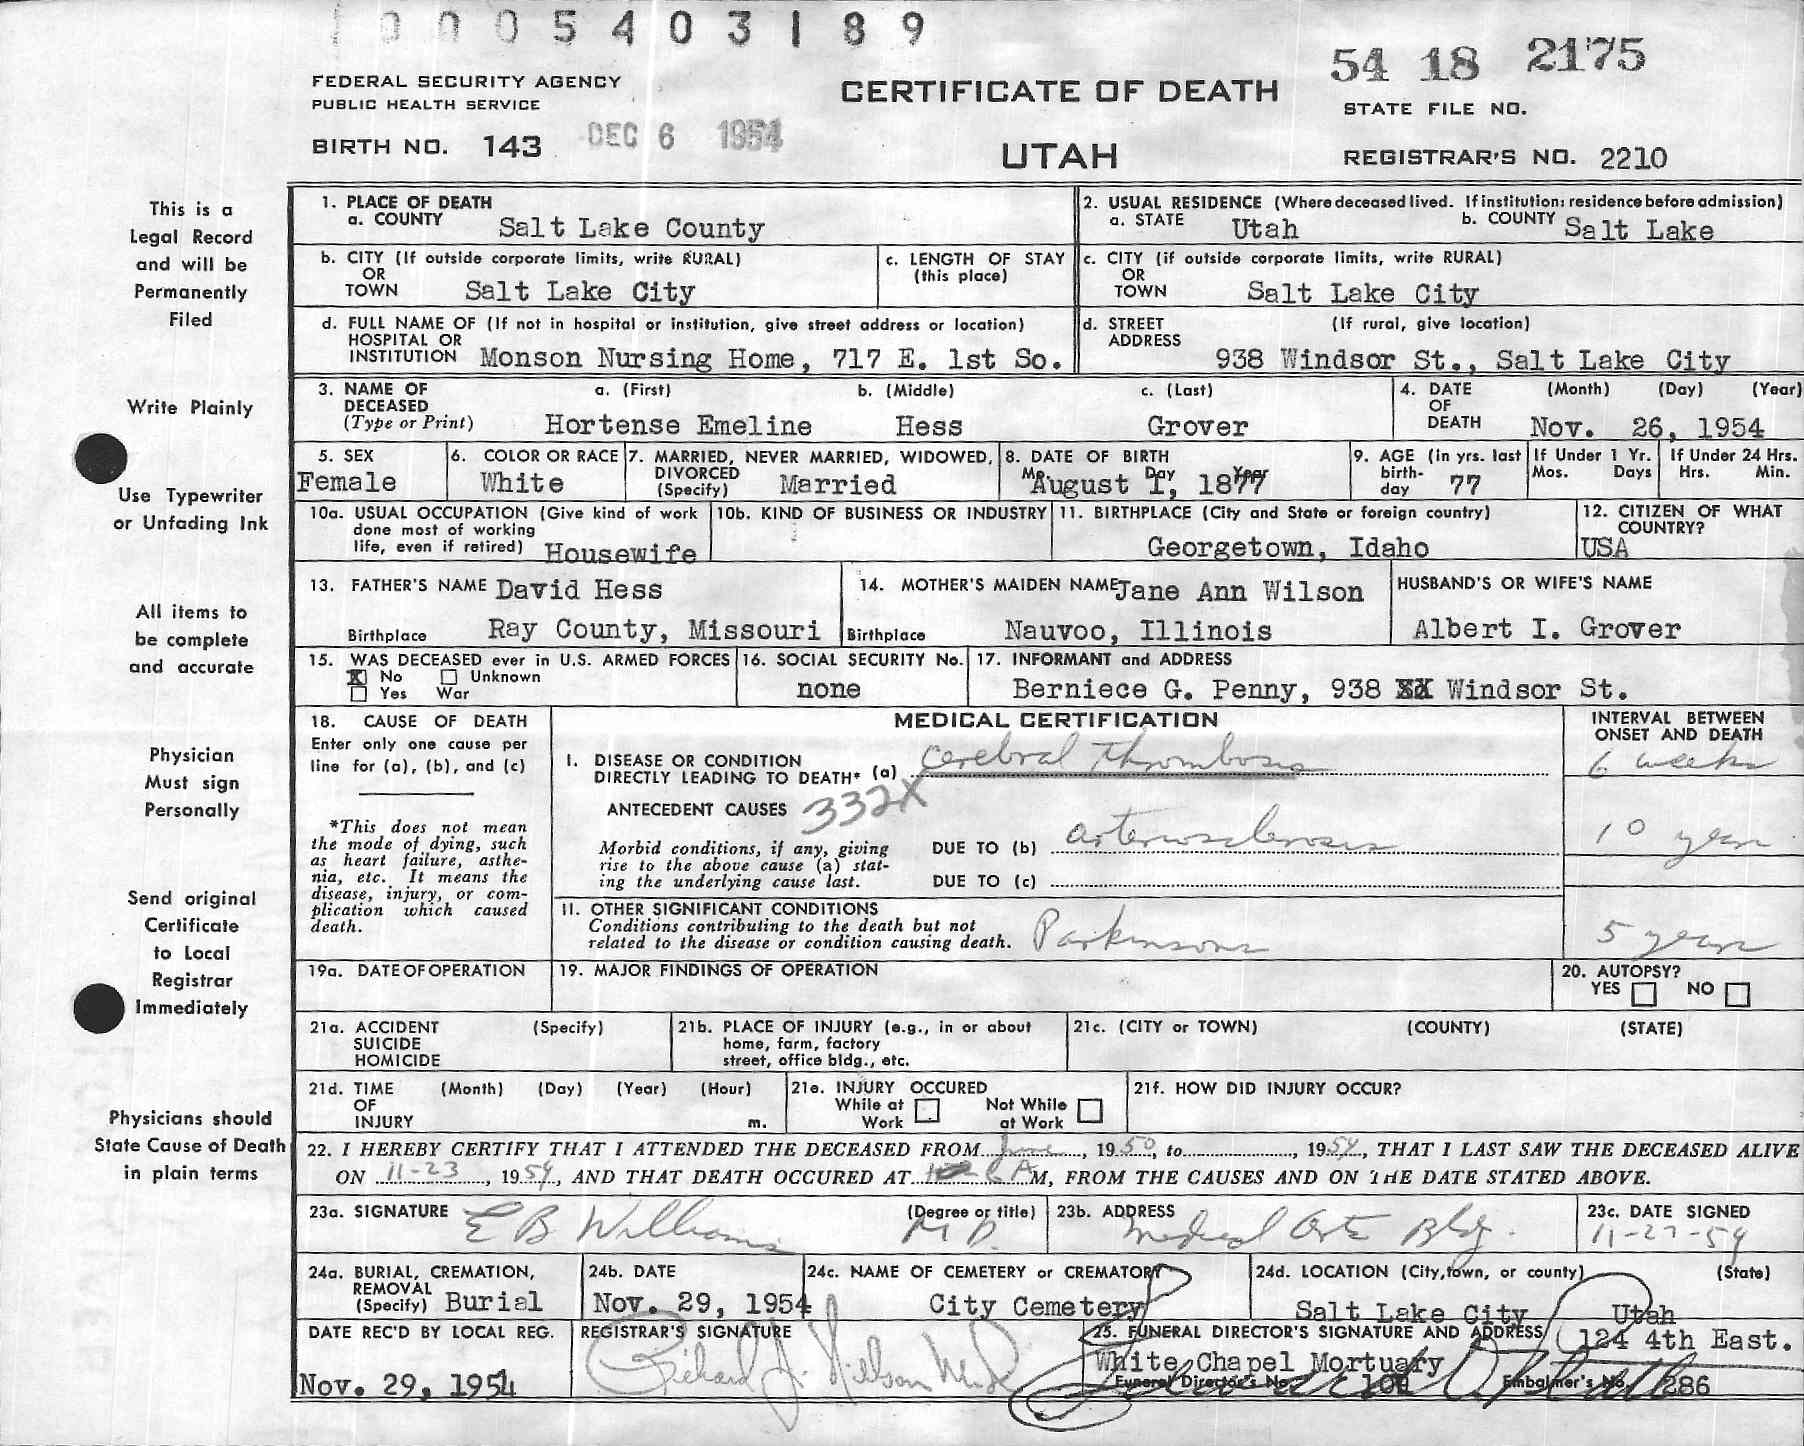 1 0 0 0 5 4 0 3 1 8 9
54 18 2175
FEDERAL SECURITY AGENCY
PUBLIC HEALTH SERVICE
CERTIFICATE OF DEATH
STATE FILE NO.
BIRTH NO. 143 DEC 6 1954
UTAH
REGISTRAR'S NO. 2210
This is a
Legal Record
and will be
Permanently
Filed
Write Plainly
Use Typewriter
or Unfading Ink
All items to
be complete
and accurate
Physician
Must sign
Personally
Send original
Certificate
to Local
Registrar
Immediately
Physicians should
State Cause of Death
in plain terms
1. PLACE OF DEATH
a. COUNTY Salt Lake County
2. USUAL RESIDENCE (Where deceased lived. If institution: residence before admission)
a. STATE Utah b. COUNTY Salt Lake
b. CITY (If outside corporate limits, write RURAL)
OR
TOWN Salt Lake City
c. LENGTH OF STAY
(this place)
c. CITY (if outside corporate limits, write RURAL)
OR
TOWN Salt Lake City
d. FULL NAME OF (If not in hospital or institution, give street address or location)
HOSPITAL OR
INSTITUTION Monson Nursing Home, 717 E. 1st So.
d. STREET (If rural, give location)
ADDRESS
938 Windsor St., Salt Lake City
3. NAME OF a. (First) b. (Middle) c. (Last)
DECEASED
(Type or Print) Hortense Emeline Hess Grover
4. DATE (Month) (Day) (Year)
OF
DEATH Nov. 26, 1954
5. SEX
Female
6. COLOR OR RACE
White
7. MARRIED, NEVER MARRIED, WIDOWED,
DIVORCED
(Specify) Married
8. DATE OF BIRTH
Day Year
August 1, 1877
9. AGE (In yrs. last
birth-
day 77
If Under 1 Yr.
Mos. Days
If Under 24 Hrs.
Hrs. Min.
10a. USUAL OCCUPATION (Give kind of work
done most of working
life, even if retired) Housewife
10b. KIND OF BUSINESS OR INDUSTRY
11. BIRTHPLACE (City and State or foreign country)
Georgetown, Idaho
12. CITIZEN OF WHAT
COUNTRY?
USA
13. FATHER'S NAME David Hess
Birthplace Ray County, Missouri
14. MOTHER'S MAIDEN NAME Jane Ann Wilson
Birthplace Nauvoo, Illinois
HUSBAND'S OR WIFE'S NAME
Albert I. Grover
15. WAS DECEASED ever in U.S. ARMED FORCES
X No Unknown
Yes War
16. SOCIAL SECURITY No.
none
17. INFORMANT and ADDRESS
Berniece G. Penny, 938 Windsor St.
18. CAUSE OF DEATH
Enter only one cause per
line for (a), (b), and (c)
*This does not mean
the mode of dying, such
as heart failure, asthe-
nia, etc. It means the
disease, injury, or com-
plication which caused
death.
MEDICAL CERTIFICATION
INTERVAL BETWEEN
ONSET AND DEATH
I. DISEASE OR CONDITION
DIRECTLY LEADING TO DEATH* (a) cerebral thrombosis 6 weeks
ANTECEDENT CAUSES 332X
Morbid conditions, if any, giving
rise to the above cause (a) stat-
ing the underlying cause last.
DUE TO (b) arteriosclerosis 10 years
DUE TO (c)
11. OTHER SIGNIFICANT CONDITIONS
Conditions contributing to the death but not
related to the disease or condition causing death. Parkinsons 5 years
19a. DATE OF OPERATION
19. MAJOR FINDINGS OF OPERATION
20. AUTOPSY?
YES NO
21a. ACCIDENT (Specify)
SUICIDE
HOMICIDE
21b. PLACE OF INJURY (e.g., in or about
home, farm, factory
street, office bldg., etc.
21c. (CITY or TOWN) (COUNTY) (STATE)
21d. TIME (Month) (Day) (Year) (Hour)
OF
INJURY m.
21e. INJURY OCCURED
While at Not While
Work at Work
21f. HOW DID INJURY OCCUR?
22. I HEREBY CERTIFY THAT I ATTENDED THE DECEASED FROM June, 1950, to , 1954, THAT I LAST SAW THE DECEASED ALIVE
ON 11-23, 1954, AND THAT DEATH OCCURED AT 6 A M, FROM THE CAUSES AND ON THE DATE STATED ABOVE.
23a. SIGNATURE E B Williams (Degree or title) M D.
23b. ADDRESS
Medical Arts Bldg.
23c. DATE SIGNED
11-27-54
24a. BURIAL, CREMATION,
REMOVAL
(Specify) Burial
24b. DATE
Nov. 29, 1954
24c. NAME OF CEMETERY or CREMATORY
City Cemetery
24d. LOCATION (City, town, or county) (State)
Salt Lake City Utah
DATE REC'D BY LOCAL REG.
Nov. 29, 1954
REGISTRAR'S SIGNATURE
Richard J. Nielson
25. FUNERAL DIRECTOR'S SIGNATURE AND ADDRESS 124 4th East.
White Chapel Mortuary
Funeral Director's No. Embalmer's No. 286